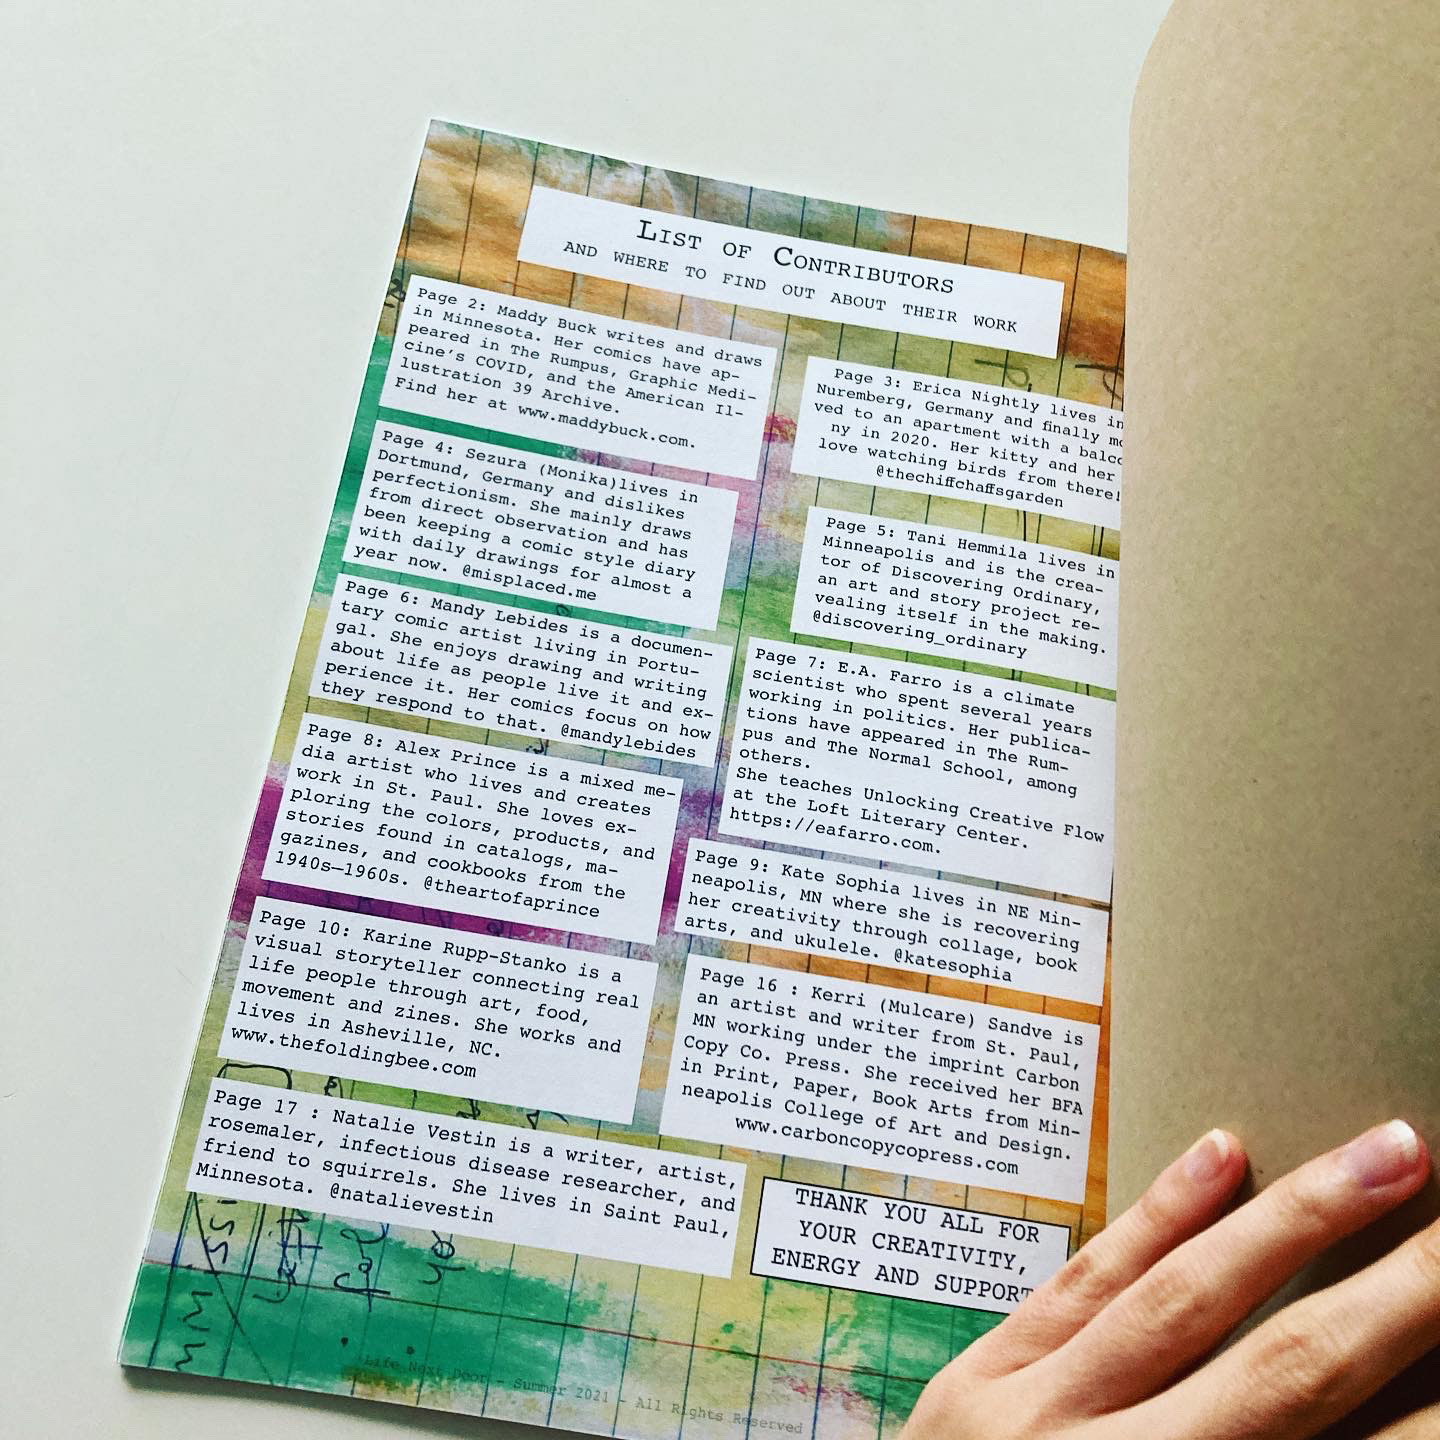 List of Contributors
and where to find out about their work
Page 2: Maddy Buck writes and draws
in Minnesota. Her comics have ap-
peared in The Rumpus, Graphic Medi-
cine's COVID, and the American Il-
lustration 39 Archive.
Find her at www.maddybuck.com.
Page 3: Erica Nightly lives in
Nuremberg, Germany and finally mo
ved to an apartment with a balco
ny in 2020. Her kitty and her
love watching birds from there!
@thechiffchaffsgarden
Page 4: Sezura (Monika)lives in
Dortmund, Germany and dislikes
perfectionism. She mainly draws
from direct observation and has
been keeping a comic style diary
with daily drawings for almost a
year now. @misplaced.me
Page 5: Tani Hemmila lives in
Minneapolis and is the crea-
tor of Discovering Ordinary,
an art and story project re-
vealing itself in the making.
@discovering_ordinary
Page 6: Mandy Lebides is a documen-
tary comic artist living in Portu-
gal. She enjoys drawing and writing
about life as people live it and ex-
perience it. Her comics focus on how
they respond to that. @mandylebides
Page 7: E.A. Farro is a climate
scientist who spent several years
working in politics. Her publica-
tions have appeared in The Rum-
pus and The Normal School, among
others.
She teaches Unlocking Creative Flow
at the Loft Literary Center.
https://eafarro.com.
Page 8: Alex Prince is a mixed me-
dia artist who lives and creates
work in St. Paul. She loves ex-
ploring the colors, products, and
stories found in catalogs, ma-
gazines, and cookbooks from the
1940s—1960s. @theartofaprince
Page 9: Kate Sophia lives in NE Min-
neapolis, MN where she is recovering
her creativity through collage, book
arts, and ukulele. @katesophia
Page 10: Karine Rupp-Stanko is a
visual storyteller connecting real
life people through art, food,
movement and zines. She works and
lives in Asheville, NC.
www.thefoldingbee.com
Page 16 : Kerri (Mulcare) Sandve is
an artist and writer from St. Paul,
MN working under the imprint Carbon
Copy Co. Press. She received her BFA
in Print, Paper, Book Arts from Min-
neapolis College of Art and Design.
www.carboncopycopress.com
Page 17 : Natalie Vestin is a writer, artist,
rosemaler, infectious disease researcher, and
friend to squirrels. She lives in Saint Paul,
Minnesota. @natalievestin
THANK YOU ALL FOR
YOUR CREATIVITY,
ENERGY AND SUPPORT
Life Next Door - Summer 2021 - All Rights Reserved